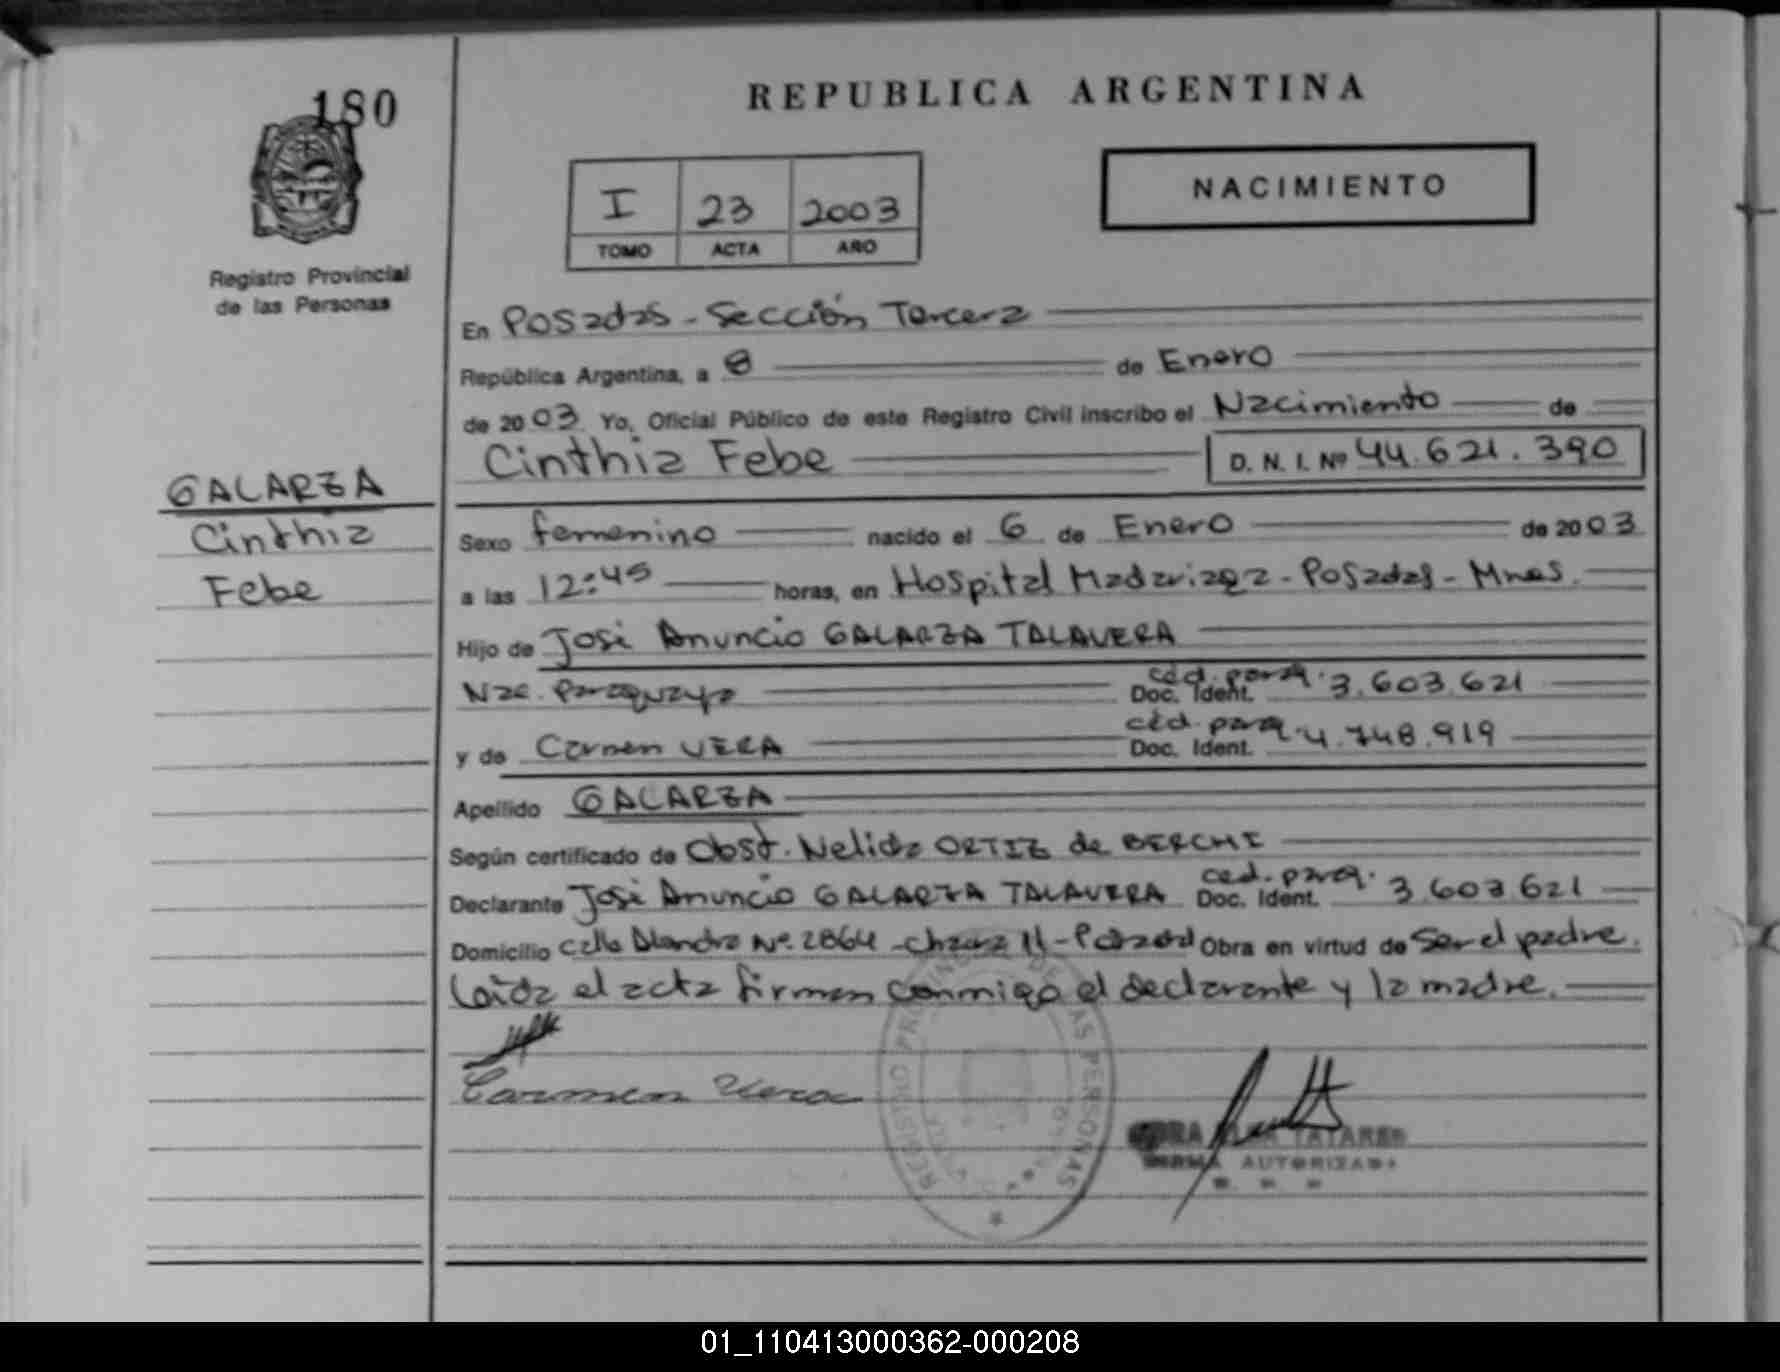 180
REPUBLICA ARGENTINA
NACIMIENTO
I 23 2003
TOMO ACTA AÑO
Registro Provincial
de las Personas
En Posadas - Sección Tercera
República Argentina, a 8 de Enero
de 2003 Yo, Oficial Público de este Registro Civil inscribo el Nacimiento de
Cinthia Febe D. N. I. Nº 44.621.390
GALARZA
Cinthia
Febe
Sexo femenino nacido el 6 de Enero de 2003
a las 12:45 horas, en Hospital Madariaga - Posadas - Mnes.
Hijo de José Anuncio GALARZA TALAVERA
Nac. Paraguaya céd. parag. Doc. Ident. 3.603.621
y de Carmen VERA céd. parag. Doc. Ident. 4.748.919
Apellido GALARZA
Según certificado de Obst. Nelida ORTIZ de BERCHI
Declarante José Anuncio GALARZA TALAVERA ced. parag. Doc. Ident. 3.603.621
Domicilio calle Nº 2864 - chacra 11 - Obra en virtud de ser el padre.
Leída el acta firman conmigo el declarante y la madre.
Carmen Vera
REGISTRO PROVINCIAL DE LAS PERSONAS
TATAREN
FIRMA AUTORIZADA
01_110413000362-000208